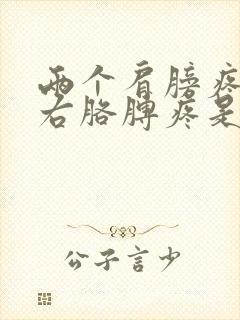 两个肩膀疼
右胳膊疼是
公子言少